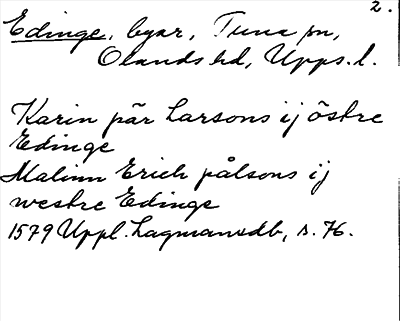 2.
Edinge, byar, Tuna sn,
Olands hd, Upps. l.
Karin pär Larsons ij östre
Edinge
Malinn Erich pålsons ij
westre Edinge
1579 Uppl. Lagmansdb, s. 76.